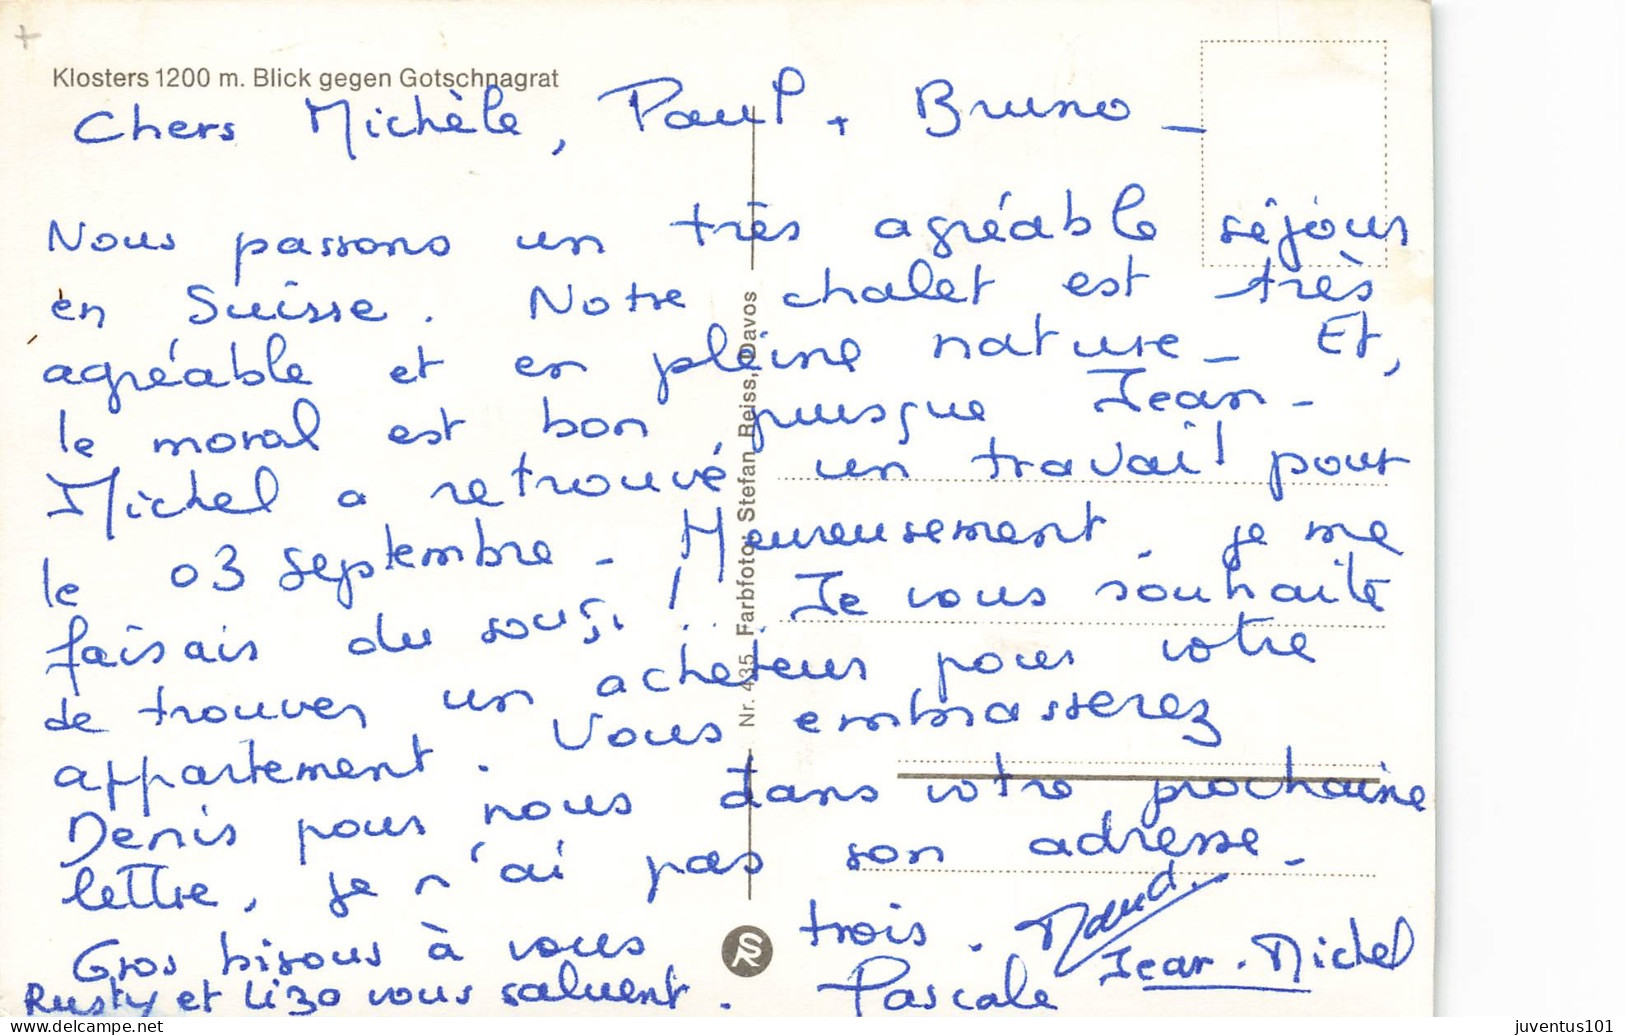 Klosters 1200 m. Blick gegen Gotschnagrat
Chers Michèle, Paul + Bruno -
Nous passons un très agréable séjour
en Suisse. Notre chalet est très
agréable et en pleine nature - Et,
le moral est bon, puisque Jean-
Michel a retrouvé un travail pour
le 03 septembre - Heureusement, je me
faisais du souçi !... Je vous souhaite
de trouver un acheteur pour votre
appartement. Vous embrasserez
Denis pour nous dans votre prochaine
lettre, je n'ai pas son adresse -
Gros bisous à vous trois.
Maud.
Jean-Michel
Rusty et Lizo vous saluent. Pascale
Nr. 435 Farbfoto: Stefan Reiss, Davos
SR
juventus101